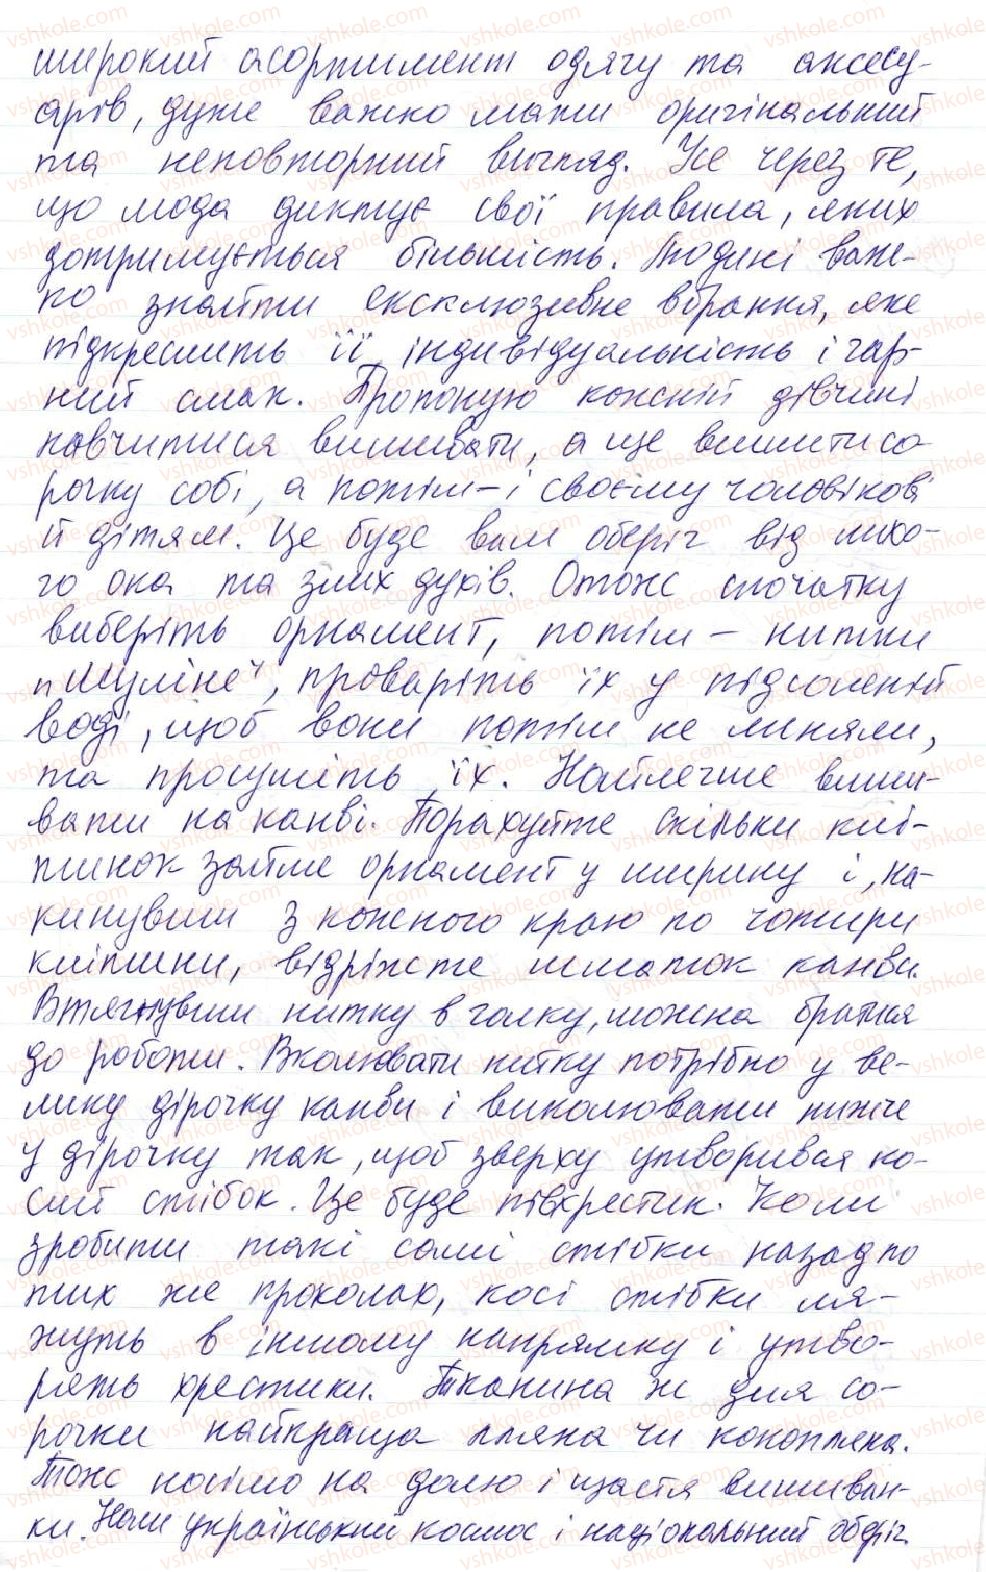 широкий асортимент одягу та аксесу-
арів, дуже важко мати оригінальний
та неповторний вигляд. Усе через те,
що мода диктує свої правила, яких
дотримується більшість. Людині важ-
ко знайти ексклюзивне вбрання, яке
підкреслить її індивідуальність і гар-
ний смак. Пропоную кожній дівчині
навчитися вишивати, а ще вишити со
рочку собі, а потім – і своєму чоловікові
й дітям. Це буде вам оберіг від лихо-
го ока та злих духів. Отож спочатку
виберіть орнамент, потім – нитки
"муліне", проваріть їх у підсоленій
воді, щоб вони потім не линяли,
та просушіть їх. Найлегше виши-
вати на канві. Порахуйте скільки клі-
тинок займе орнамент у ширину і, на-
кинувши з кожного краю по чотири
клітини, відріжте шматок канви.
Втягнувши нитку в голку, можна братися
до роботи. Вколювати нитку потрібно у ве-
лику дірочку канви і виколювати нижче
у дірочку так, щоб зверху утворився ко-
сий стібок. Це буде півхрестик. Коли
зробити такі самі стібки назад по
тих же проколах, косі стібки ля-
жуть в іншому напрямку і утво-
рять хрестики. Тканина ж для со-
рочки найкраща лляна чи конопляна.
Тож носімо на долю і щастя вишиван-
ки. Наш український космос і національний оберіг.